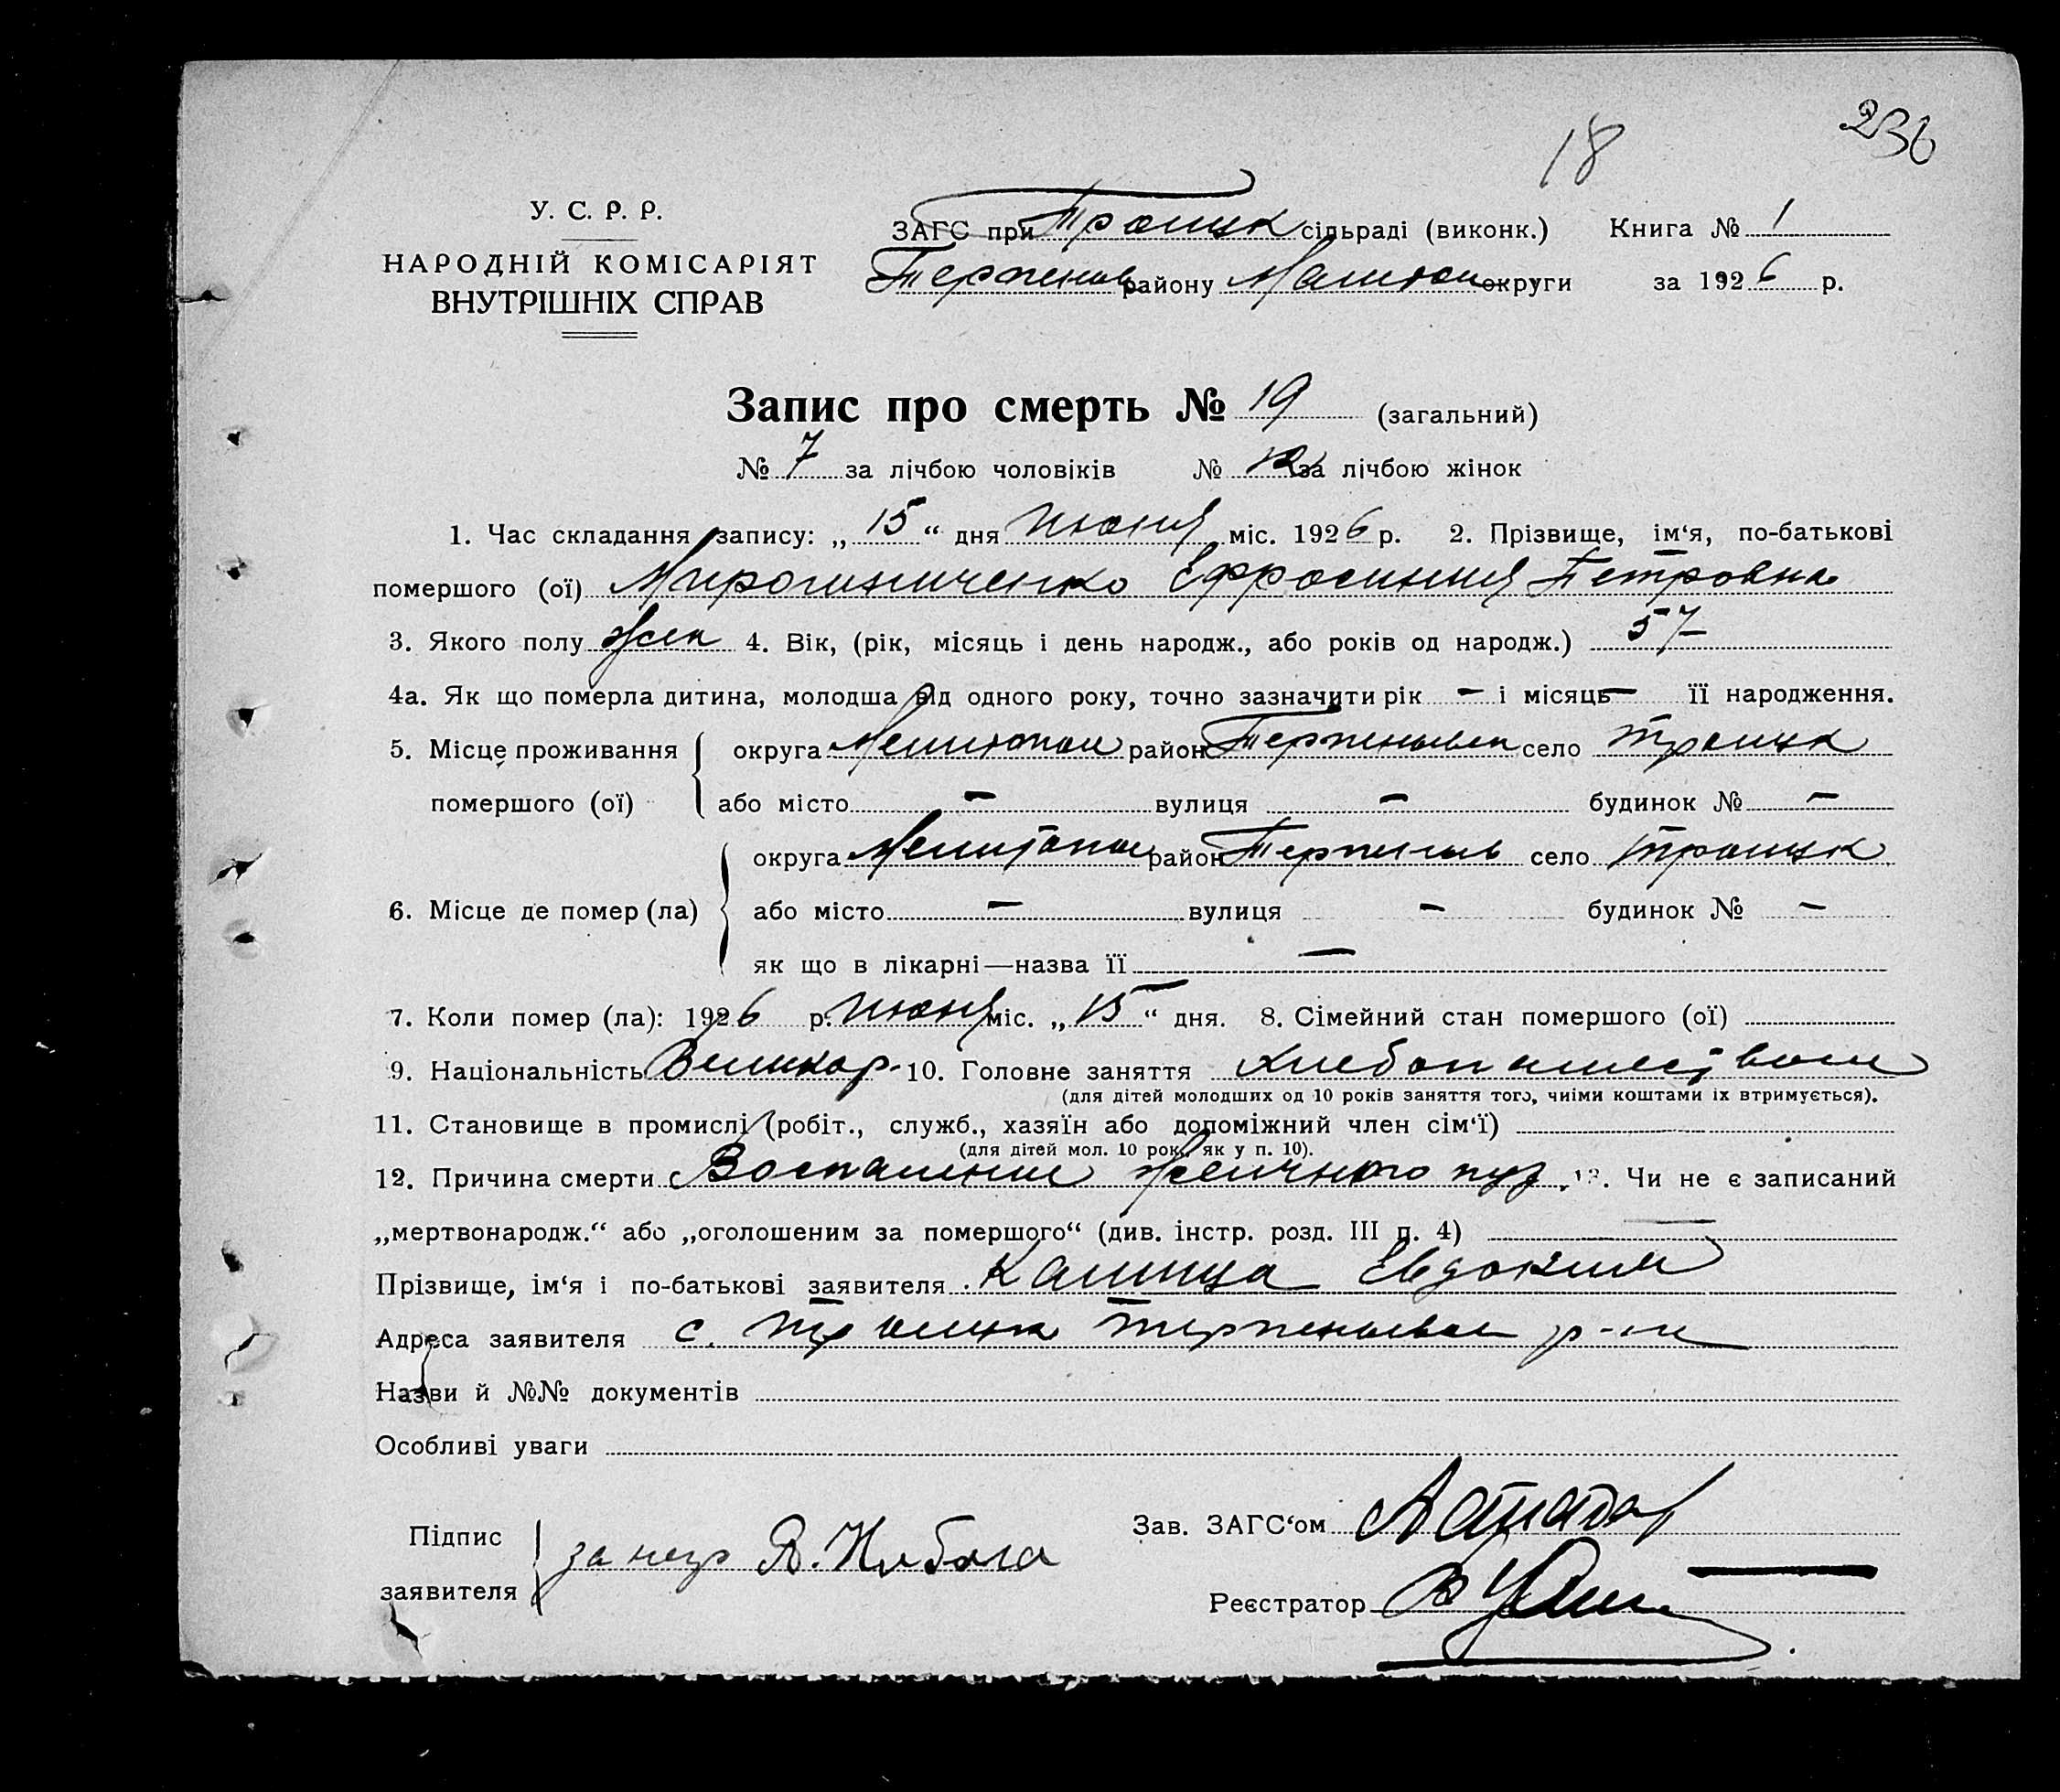 236
18
У. С. Р. Р.
НАРОДНІЙ КОМІСАРІЯТ
ВНУТРІШНІХ СПРАВ
ЗАГС при Троицк сільраді (виконк.) Книга № 1
Терпенов району Мелитоп округи за 1926 р.
Запис про смерть № 19 (загальний)
№ 7 за лічбою чоловіків № 12 за лічбою жінок
1. Час складання запису: „ 15 “ дня Июня міс. 1926 р. 2. Прізвище, ім‘я, по-батькові
помершого (ої) Мирошниченко Ефросиния Петровна
3. Якого полу жен 4. Вік, (рік, місяць і день народж., або років од народж.) 57
4а. Як що померла дитина, молодша від одного року, точно зазначити рік — і місяць — її народження.
5. Місце проживання округа Мелитопол район Терпеньевск село Троицк
помершого (ої) або місто — вулиця — будинок № —
округа Мелитопол район Терпеньев село Троицк
6. Місце де помер (ла) або місто — вулиця — будинок № —
як що в лікарні—назва її —
7. Коли помер (ла): 1926 р. Июня міс. „ 15 “ дня. 8. Сімейний стан помершого (ої)
9. Національність Великор. 10. Головне заняття хлебопашеством
(для дітей молодших од 10 років заняття того, чиїми коштами їх втримується).
11. Становище в промислі (робіт., служб., хазяїн або допоміжний член сім‘ї)
(для дітей мол. 10 рок. як у п. 10).
12. Причина смерти Воспаление желчного пуз. 13. Чи не є записаний
„мертвонародж.“ або „оголошеним за помершого“ (див. інстр. розд. III п. 4) —
Прізвище, ім‘я і по-батькові заявителя Евдоким
Адреса заявителя с. Троицк Терпеньевск р-на
Назви й №№ документів
Особливі уваги
Підпис
заявителя за негр
Зав. ЗАГС‘ом
Реєстратор